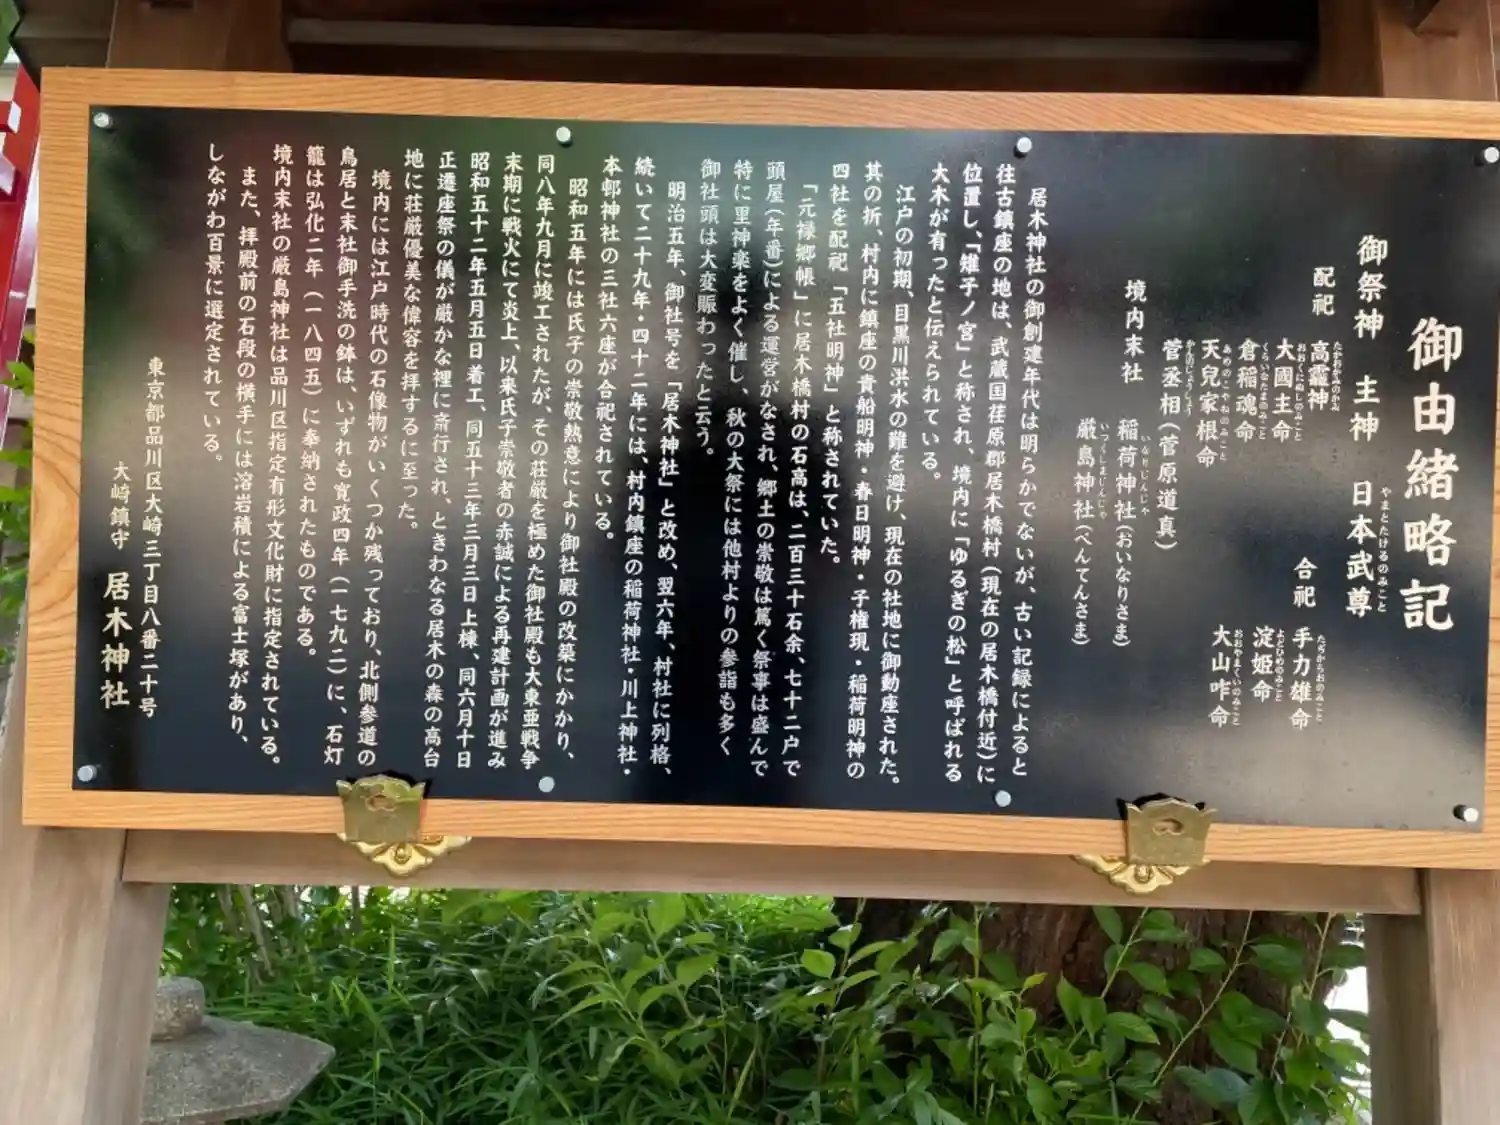 御由緒略記
御祭神　主神　日本武尊
やまとたけるのみこと
配祀　高龗神
たかおかみのかみ
大國主命
おおくにぬしのみこと
倉稲魂命
くらいなたまのみこと
天兒家根命
あめのこやねのみこと
菅丞相（菅原道真）
かんしょうじょう
合祀　手力雄命
たぢからおのみこと
淀姫命
よどひめのみこと
大山咋命
おおやまくいのみこと
境内末社　稲荷神社（おいなりさま）
いなりじんじゃ
厳島神社（べんてんさま）
いつくしまじんじゃ
居木神社の御創建年代は明らかでないが、古い記録によると
往古鎮座の地は、武蔵国荏原郡居木橋村（現在の居木橋付近）に
位置し、「雉子ノ宮」と称され、境内に「ゆるぎの松」と呼ばれる
大木が有ったと伝えられている。
江戸の初期、目黒川洪水の難を避け、現在の社地に御動座された。
其の折、村内に鎮座の貴船明神・春日明神・子権現・稲荷明神の
四社を配祀「五社明神」と称されていた。
「元禄郷帳」に居木橋村の石高は、二百三十石余、七十二戸で
頭屋（年番）による運営がなされ、郷土の崇敬は篤く祭事は盛んで
特に里神楽をよく催し、秋の大祭には他村よりの参詣も多く
御社頭は大変賑わったと云う。
明治五年、御社号を「居木神社」と改め、翌六年、村社に列格、
続いて二十九年・四十二年には、村内鎮座の稲荷神社・川上神社・
本邨神社の三社六座が合祀されている。
昭和五年には氏子の崇敬熱意により御社殿の改築にかかり、
同八年九月に竣工されたが、その荘厳を極めた御社殿も大東亜戦争
末期に戦火にて炎上、以来氏子崇敬者の赤誠による再建計画が進み
昭和五十二年五月五日着工、同五十三年三月三日上棟、同六月十日
正遷座祭の儀が厳かな裡に斎行され、ときわなる居木の森の高台
地に荘厳優美な偉容を拝するに至った。
境内には江戸時代の石像物がいくつか残っており、北側参道の
鳥居と末社御手洗の鉢は、いずれも寛政四年（一七九二）に、石灯
籠は弘化二年（一八四五）に奉納されたものである。
境内末社の厳島神社は品川区指定有形文化財に指定されている。
また、拝殿前の石段の横手には溶岩積による富士塚があり、
しながわ百景に選定されている。
東京都品川区大崎三丁目八番二十号
大崎鎮守　居木神社